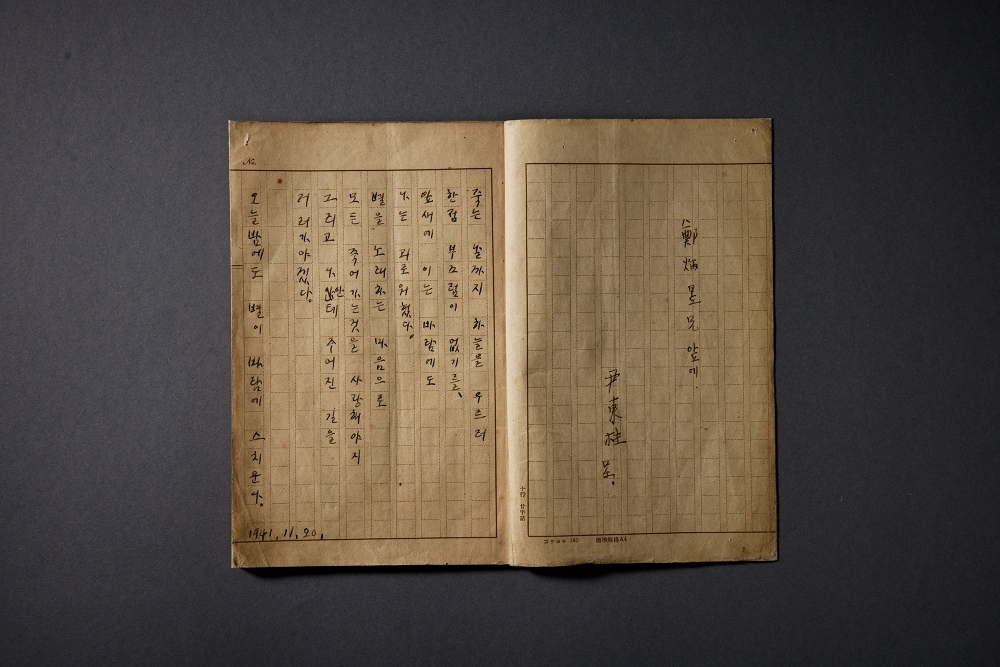 鄭炳昱兄 앞에.
尹東柱 呈.
十行 廿字詰
標準規格A4
죽는 날까지 하늘을 우르러
한점 부끄럼이 없기를、
잎새에 이는 바람에도
나는 괴로워했다.
별을 노래하는 마음으로
모든 죽어가는것을 사랑해야지
그리고 나안테 주어진 길을
거러가야겠다.
오늘밤에도 별이 바람에 스치운다.
1941.11.20.
No.